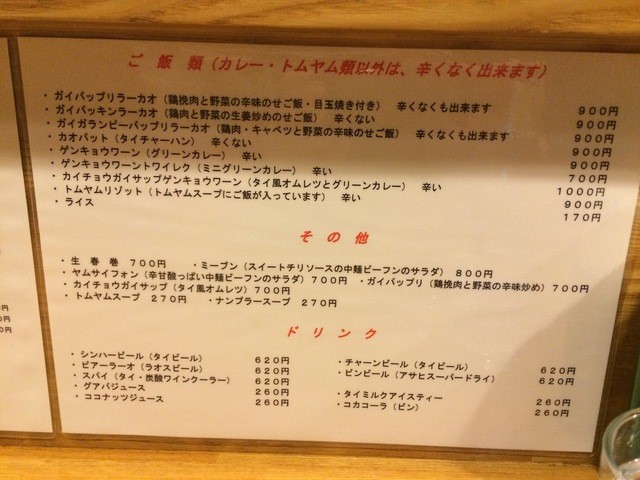 ご飯類（カレー・トムヤム類以外は、辛くなく出来ます）
・ガイパップリラーカオ（鶏挽肉と野菜の辛味のせご飯・目玉焼き付き） 辛くなくも出来ます 900円
・ガイパッキンラーカオ（鶏肉と野菜の生姜炒めのせご飯） 辛くない 900円
・ガイガランピーパップリラーカオ（鶏肉・キャベツと野菜の辛味のせご飯） 辛くなくも出来ます 900円
・カオパット（タイチャーハン） 辛くない 900円
・ゲンキョウワーン（グリーンカレー） 辛い 900円
・ゲンキョウワーントワイレク（ミニグリーンカレー） 辛い 700円
・カイチョウガイサップゲンキョウワーン（タイ風オムレツとグリーンカレー） 辛い 1000円
・トムヤムリゾット（トムヤムスープにご飯が入っています） 辛い 900円
・ライス 170円
その他
・生春巻 700円 ・ミーブン（スイートチリソースの中麺ビーフンのサラダ） 800円
・ヤムサイフォン（辛甘酸っぱい中麺ビーフンのサラダ）700円 ・ガイパップリ（鶏挽肉と野菜の辛味炒め）700円
・カイチョウガイサップ（タイ風オムレツ）700円
・トムヤムスープ 270円 ・ナンプラースープ 270円
ドリンク
・シンハービール（タイビール） 620円 ・チャーンビール（タイビール） 620円
・ビアーラーオ（ラオスビール） 620円 ・ビンビール（アサヒスーパードライ） 620円
・スパイ（タイ・炭酸ワインクーラー） 620円
・グアバジュース 260円 ・タイミルクアイスティー 260円
・ココナッツジュース 260円 ・コカコーラ（ビン） 260円